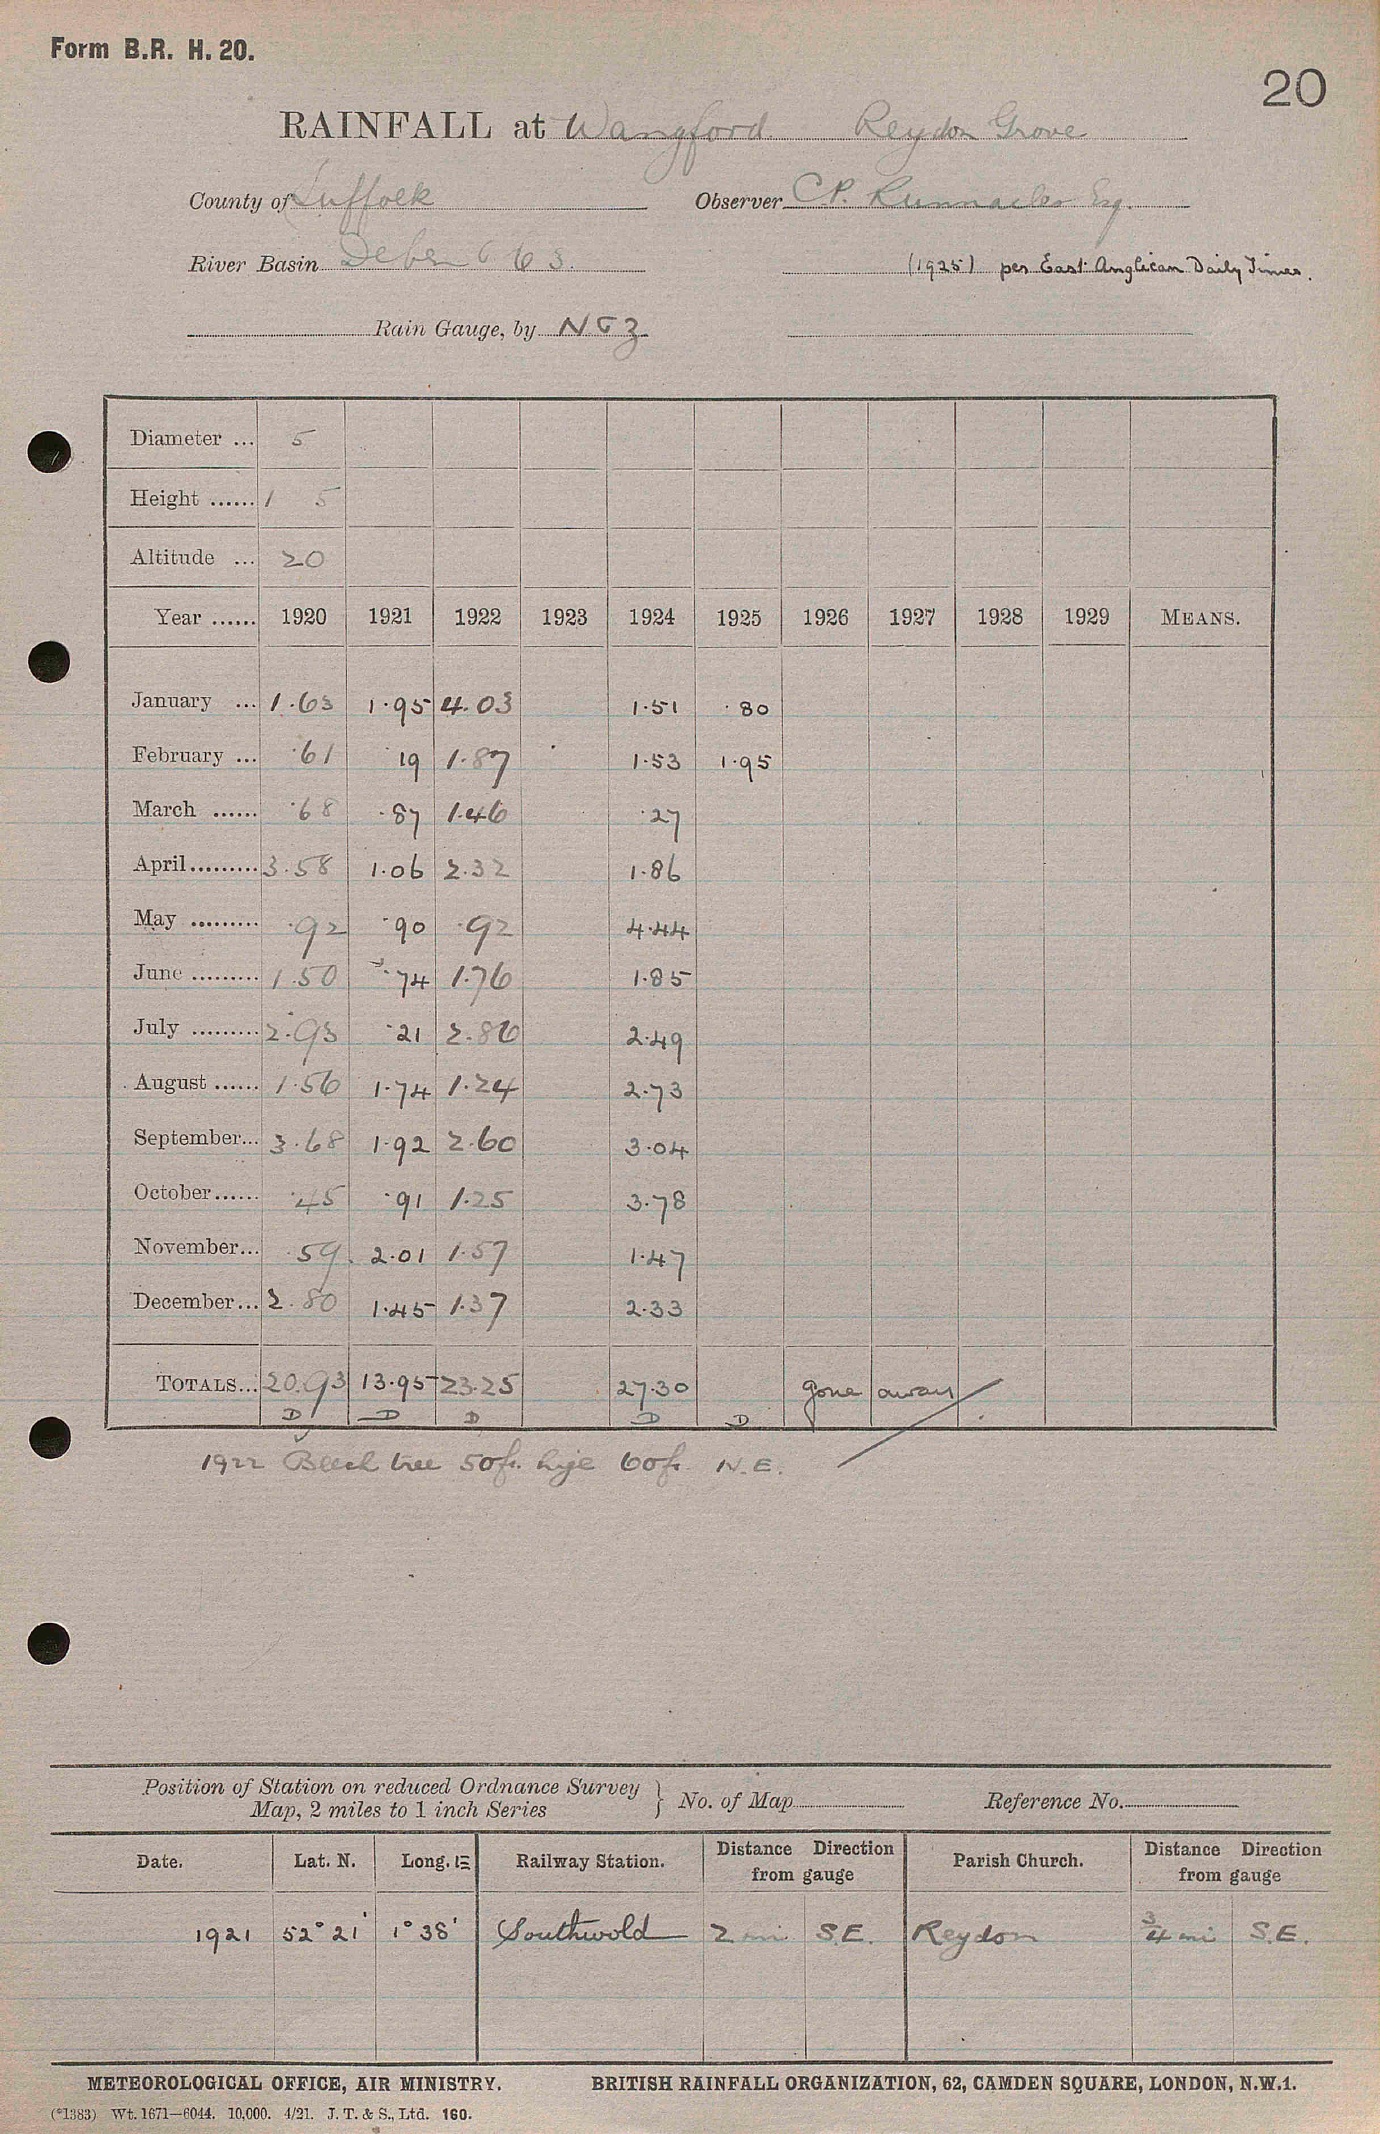 Form B.R. H. 20.
20
RAINFALL at Wangford Reydon Grove
County of Suffolk Observer C.P. Runnacles Esq.
River Basin Deben 663. (1925) per East Anglican Daily Times.
Rain Gauge, by N & Z
Diameter ... 5
Height ...... 1 5
Altitude ... 20
Year ...... 1920 1921 1922 1923 1924 1925 1926 1927 1928 1929 MEANS.
January ... 1.63 1.95 4.03 1.51 .80
February ... .61 .19 1.87 1.53 1.95
March ...... .68 .87 1.46 .27
April......... 3.58 1.06 2.32 1.86
May ......... .92 .90 .92 4.44
June ......... 1.50 .74 1.76 1.85
July ......... 2.93 .21 2.86 2.49
August ...... 1.56 1.74 1.24 2.73
September... 3.68 1.92 2.60 3.04
October...... .45 .91 1.25 3.78
November... .59 2.01 1.57 1.47
December... 2.80 1.45 1.37 2.33
TOTALS... 20.93 13.95 23.25 27.30 gone away
D D D D D
1922 Beech tree 50ft. hige 60ft N.E.
Position of Station on reduced Ordnance Survey
Map, 2 miles to 1 inch Series } No. of Map Reference No.
Date. Lat. N. Long. E Railway Station. Distance Direction from gauge Parish Church. Distance Direction from gauge
1921 52° 21' 1° 38' Southwold 2 mi S.E. Reydon 3/4 mi S.E.
METEOROLOGICAL OFFICE, AIR MINISTRY. BRITISH RAINFALL ORGANIZATION, 62, CAMDEN SQUARE, LONDON, N.W.1.
(*1383) Wt. 1671—6044. 10,000. 4/21. J. T. & S., Ltd. 160.